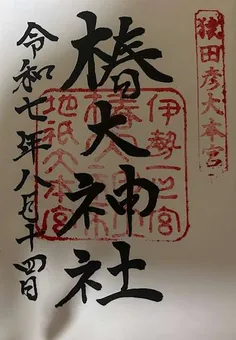 猿田彦大本宮
伊勢一之宮
椿大神社
地祇大本宮
令和七年八月十四日